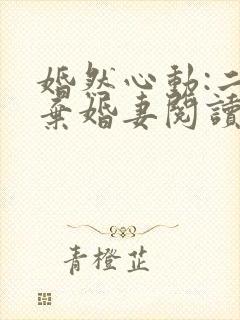 婚然心動:二
棄婚妻閱讀
青橙芷